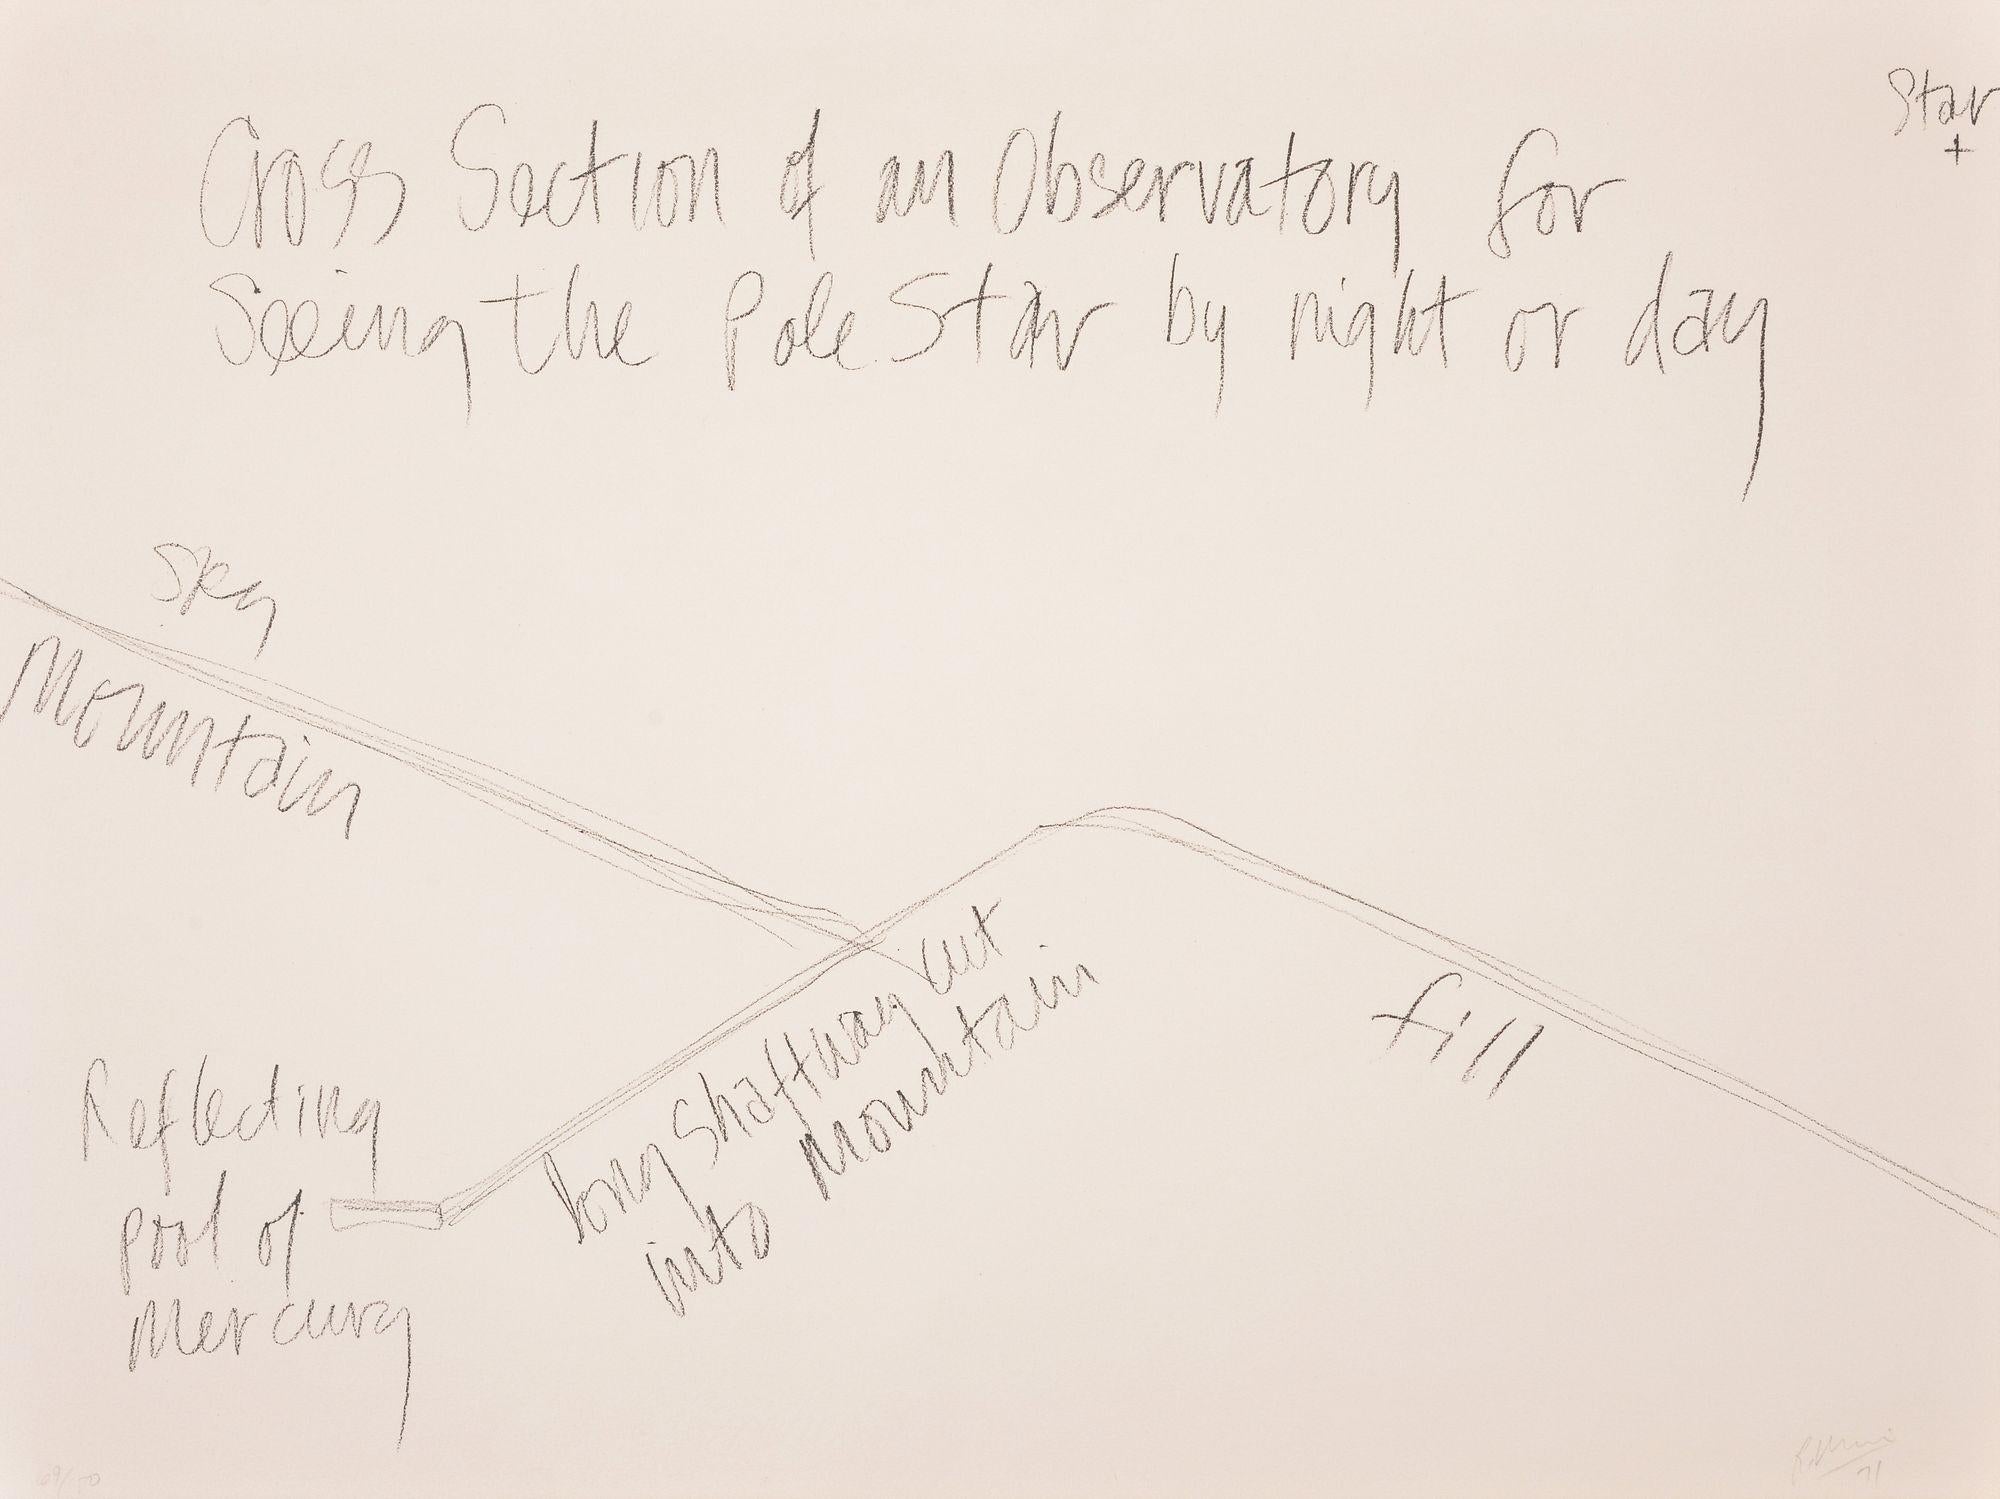 Star
Cross Section of an Observatory for
Seeing the Pole Star by night or day
Sky
Mountain
long shaftway cut
into mountain
fill
Reflecting
pool of
Mercury
71